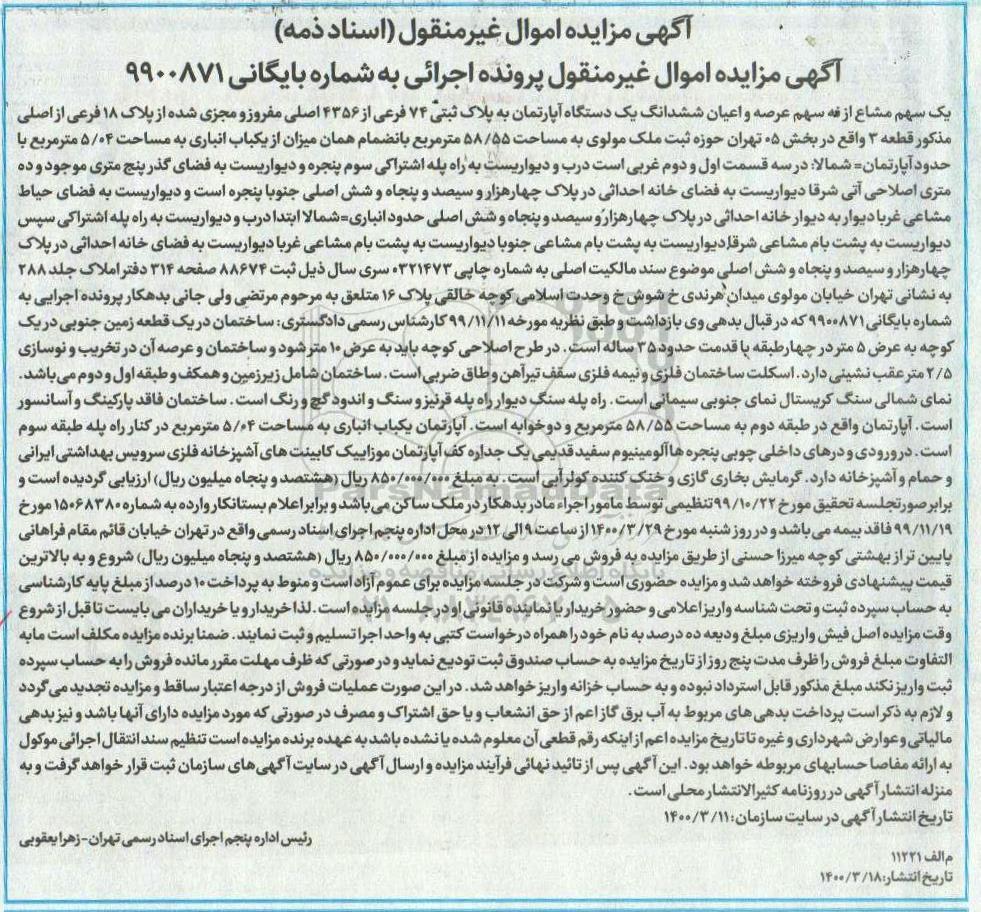 آگهی مزایده اموال غیرمنقول (اسناد ذمه)
آگهی مزایده اموال غیرمنقول پرونده اجرائی به شماره بایگانی ۹۹۰۰۸۷۱
یک سهم مشاع از نه سهم عرصه و اعیان ششدانگ یک دستگاه آپارتمان به پلاک ثبتی ۷۴ فرعی از ۴۳۵۶ اصلی مفروز و مجزی شده از پلاک ۱۸ فرعی از اصلی
مذکور قطعه ۳ واقع در بخش ۰۵ تهران حوزه ثبت ملک مولوی به مساحت ۵۸/۵۵ مترمربع بانضمام همان میزان از یکباب انباری به مساحت ۵/۰۴ مترمربع با
حدود آپارتمان= شمالا: در سه قسمت اول و دوم غربی است درب و دیواریست به راه پله اشتراکی سوم پنجره و دیواریست به فضای گذر پنج متری موجود و ده
متری اصلاحی آتی شرقا دیواریست به فضای خانه احداثی در پلاک چهارهزار و سیصد و پنجاه و شش اصلی جنوبا پنجره است و دیواریست به فضای حیاط
مشاعی غربا دیوار به دیوار خانه احداثی در پلاک چهارهزار و سیصد و پنجاه و شش اصلی حدود انباری=شمالا ابتدا درب و دیواریست به راه پله اشتراکی سپس
دیواریست به پشت بام مشاعی شرقا دیواریست به پشت بام مشاعی جنوبا دیواریست به پشت بام مشاعی غربا دیواریست به فضای خانه احداثی در پلاک
چهارهزار و سیصد و پنجاه و شش اصلی موضوع سند مالکیت اصلی به شماره چاپی ۰۳۲۱۴۷۳ سری سال ذیل ثبت ۸۸۶۷۴ صفحه ۳۱۴ دفتر املاک جلد ۲۸۸
به نشانی تهران خیابان مولوی میدان هرندی خ شوش خ وحدت اسلامی کوچه خالقی پلاک ۱۶ متعلق به مرحوم مرتضی ولی جانی بدهکار پرونده اجرایی به
شماره بایگانی ۹۹۰۰۸۷۱ که در قبال بدهی وی بازداشت و طبق نظریه مورخه ۹۹/۱۱/۱۱ کارشناس رسمی دادگستری: ساختمان در یک قطعه زمین جنوبی در یک
کوچه به عرض ۵ متر در چهارطبقه با قدمت حدود ۳۵ ساله است. در طرح اصلاحی کوچه باید به عرض ۱۰ متر شود و ساختمان و عرصه آن در تخریب و نوسازی
۲/۵ متر عقب نشینی دارد. اسکلت ساختمان فلزی و نیمه فلزی سقف تیرآهن و طاق ضربی است. ساختمان شامل زیرزمین و همکف و طبقه اول و دوم می باشد.
نمای شمالی سنگ کریستال نمای جنوبی سیمانی است. راه پله سنگ دیوار راه پله قرنیز و سنگ و اندود گچ و رنگ است. ساختمان فاقد پارکینگ و آسانسور
است. آپارتمان واقع در طبقه دوم به مساحت ۵۸/۵۵ مترمربع و دوخوابه است. آپارتمان یکباب انباری به مساحت ۵/۰۴ مترمربع در کنار راه پله طبقه سوم
است. درورودی و درهای داخلی چوبی پنجره ها آلومینیوم سفید قدیمی یک جداره کف آپارتمان موزاییک کابینت های آشپزخانه فلزی سرویس بهداشتی ایرانی
و حمام و آشپزخانه دارد. گرمایش بخاری گازی و خنک کننده کولر آبی است. به مبلغ ۸۵۰/۰۰۰/۰۰۰ ریال (هشتصد و پنجاه میلیون ریال) ارزیابی گردیده است و
برابر صورتجلسه تحقیق مورخ ۹۹/۱۰/۲۲ تنظیمی توسط مامور اجراء مادر بدهکار در ملک ساکن می باشد و برابر اعلام بستانکار وارده به شماره ۱۵۰۶۸۳۸۰ مورخ
۹۹/۱۱/۱۹ فاقد بیمه می باشد و در روز شنبه مورخ ۱۴۰۰/۳/۲۹ از ساعت ۹ الی ۱۲ در محل اداره پنجم اجرای اسناد رسمی واقع در تهران خیابان قائم مقام فراهانی
پایین تر از بهشتی کوچه میرزا حسنی از طریق مزایده به فروش می رسد و مزایده از مبلغ ۸۵۰/۰۰۰/۰۰۰ ریال (هشتصد و پنجاه میلیون ریال) شروع و به بالاترین
قیمت پیشنهادی فروخته خواهد شد و مزایده حضوری است و شرکت در جلسه مزایده برای عموم آزاد است و منوط به پرداخت ۱۰ درصد از مبلغ پایه کارشناسی
به حساب سپرده ثبت و تحت شناسه واریز اعلامی و حضور خریدار یا نماینده قانونی او در جلسه مزایده است. لذا خریدار و یا خریداران می بایست تا قبل از شروع
وقت مزایده اصل فیش واریزی مبلغ ودیعه ده درصد به نام خود را همراه درخواست کتبی به واحد اجرا تسلیم و ثبت نمایند. ضمنا برنده مزایده مکلف است مابه
التفاوت مبلغ فروش را ظرف مدت پنج روز از تاریخ مزایده به حساب صندوق ثبت تودیع نماید و در صورتی که ظرف مهلت مقرر مانده فروش را به حساب سپرده
ثبت واریز نکند مبلغ مذکور قابل استرداد نبوده و به حساب خزانه واریز خواهد شد. در این صورت عملیات فروش از درجه اعتبار ساقط و مزایده تجدید می گردد
و لازم به ذکر است پرداخت بدهی های مربوط به آب برق گاز اعم از حق انشعاب و یا حق اشتراک و مصرف در صورتی که مورد مزایده دارای آنها باشد و نیز بدهی
مالیاتی و عوارض شهرداری و غیره تا تاریخ مزایده اعم از اینکه رقم قطعی آن معلوم شده یا نشده باشد به عهده برنده مزایده است تنظیم سند انتقال اجرائی موکول
به ارائه مفاصا حسابهای مربوطه خواهد بود. این آگهی پس از تائید نهائی فرآیند مزایده و ارسال آگهی در سایت آگهی های سازمان ثبت قرار خواهد گرفت و به
منزله انتشار آگهی در روزنامه کثیرالانتشار محلی است.
تاریخ انتشار آگهی در سایت سازمان: ۱۴۰۰/۳/۱۱
رئیس اداره پنجم اجرای اسناد رسمی تهران- زهرا یعقوبی
م الف ۱۱۲۲۱
تاریخ انتشار: ۱۴۰۰/۳/۱۸